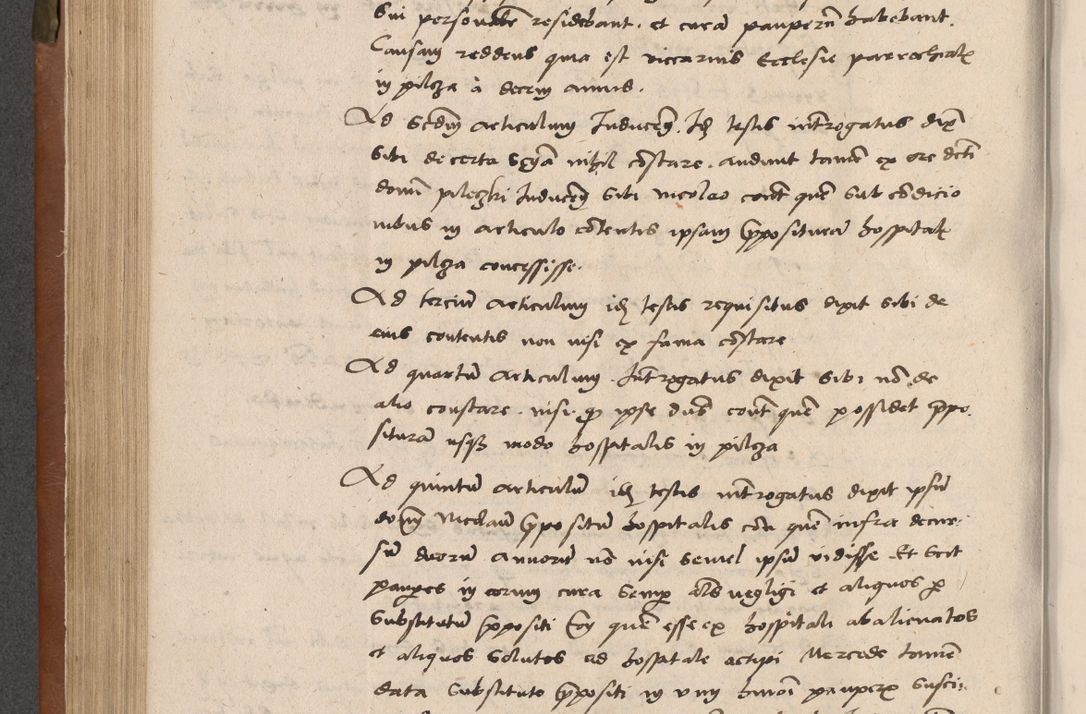 Sui personalem residebant. et curam pauperum habebant.
Causam reddens quia est viccarius Ecclesie parrochialis
in pilcza à decem annis.
Ad secundum articulum Inducentis. Idem testis interrogatus dixit
sibi de certa scientia nihil constare. audiuit tamen ex ore dicti
domini pileczki Inducentis sibi nicolao contra quem sub condicio
nibus in articulo contentis ipsam preposituram hospitalis
in pilcza concessisse.
Ad tercium articulum idem testis requisitus dixit sibi de
eius contentis non nisi ex fama constare
Ad quartum articulum Interrogatus dixit sibi non de
alio constare. nisi quod ipse dominus contra quem possidet prepo
situram usque modo hospitalis in pilcza
Ad quintum articulum idem testis interrogatus dixit ipsum
dominum Nicolaum prepositum hospitalis contra quem infra decur
sum duorum annorum non nisi semel ipsum vidisse. Et scit
pauperes in eorum cura semper negligi et aliquos per
substitutum prepositi quem esse ex hospitali abalienatos
et aliquos solutos ad hospitale accipi Mercede tamen
data substituto prepositi in unum pauperum susci